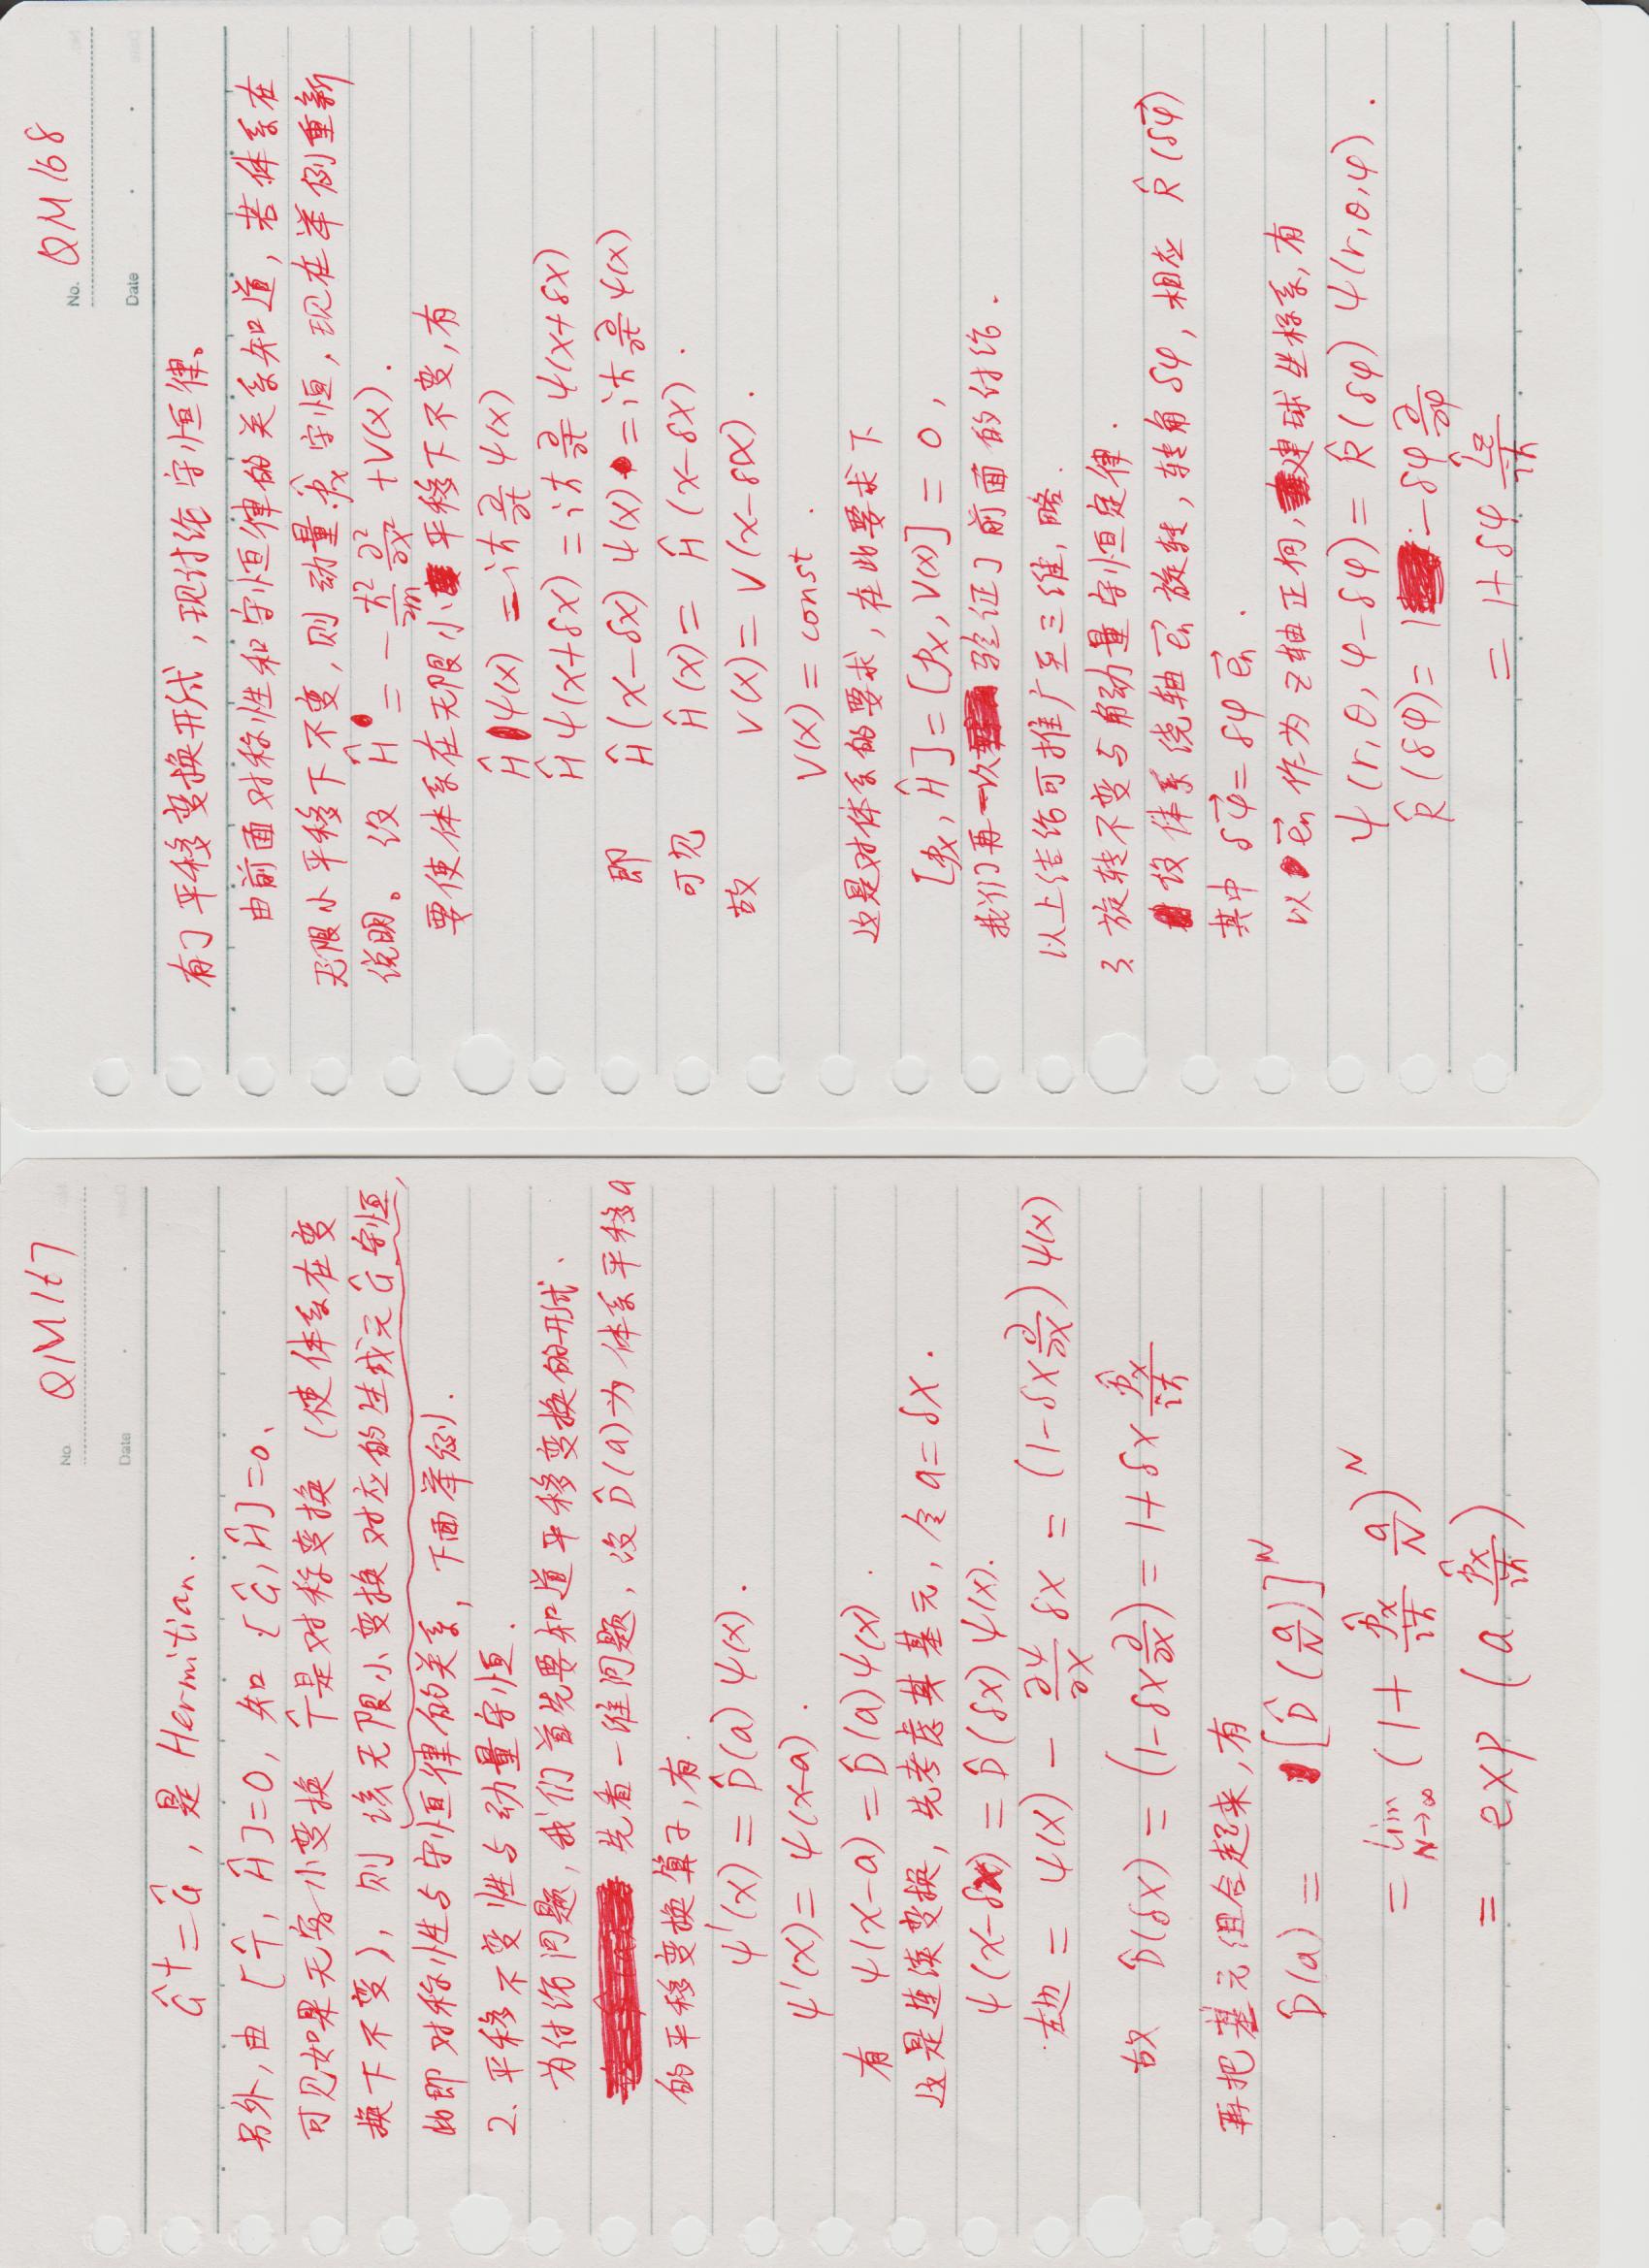 No. QM167
Date
Ĝ† = Ĝ, 是 Hermitian.
另外, 由 [T̂, Ĥ]=0, 知 [Ĝ, Ĥ]=0.
可见如果无穷小变换 T̂是对称变换 (使体系在变
换下不变), 则 该无限小变换对应的生成元Ĝ守恒,
此即对称性与守恒律的关系, 下面举例.
2. 平移不变性与动量守恒.
为讨论问题, 我们首先要知道平移变换的形式.
先看一维问题, 设 D̂(a)为体系平移a
的平移变换算子, 有.
ψ'(x) = D̂(a) ψ(x).
ψ'(x) = ψ(x-a).
有 ψ(x-a) = D̂(a)ψ(x).
这是连续变换, 先考虑其基元, 令 a = δx.
ψ(x-δx) = D̂(δx) ψ(x).
左边 = ψ(x) - ∂ψ/∂x δx = (1-δx ∂/∂x) ψ(x)
故 D̂(δx) = (1-δx ∂/∂x) = 1+δx p̂x/iħ
再把基元组合起来, 有
D̂(a) = [D̂(a/N)]^N
= lim N→∞ (1+ p̂x/iħ a/N)^N
= exp (a p̂x/iħ)
No. QM168
Date
有了平移变换形式, 现讨论守恒律。
由前面对称性和守恒律的关系知道, 若体系在
无限小平移下不变, 则动量p̂x守恒, 现在举例重新
说明。设 Ĥ = -ħ²/2m ∂²/∂x² + V(x).
要使体系在无限小平移下不变, 有
Ĥψ(x) = iħ ∂/∂t ψ(x)
Ĥψ(x+δx) = iħ ∂/∂t ψ(x+δx)
即 Ĥ(x-δx) ψ(x) = iħ ∂/∂t ψ(x)
可见 Ĥ(x) = Ĥ(x-δx).
故 V(x) = V(x-δx).
V(x) = const.
这是对体系的要求, 在此要求下
[px, Ĥ] = [px, V(x)] = 0,
我们再一次验证了前面的讨论.
以上结论可推广至三维, 略.
3. 旋转不变与角动量守恒定律.
设体系绕轴 e⃗n 旋转, 转角 δφ, 相应 R̂(δφ⃗)
其中 δφ⃗ = δφ e⃗n.
以 e⃗n 作为 z轴正向, 建球坐标系, 有
ψ(r,θ,φ-δφ) = R̂(δφ) ψ(r,θ,φ).
R̂(δφ) = 1 - δφ ∂/∂φ
= 1+δφ L̂z/iħ